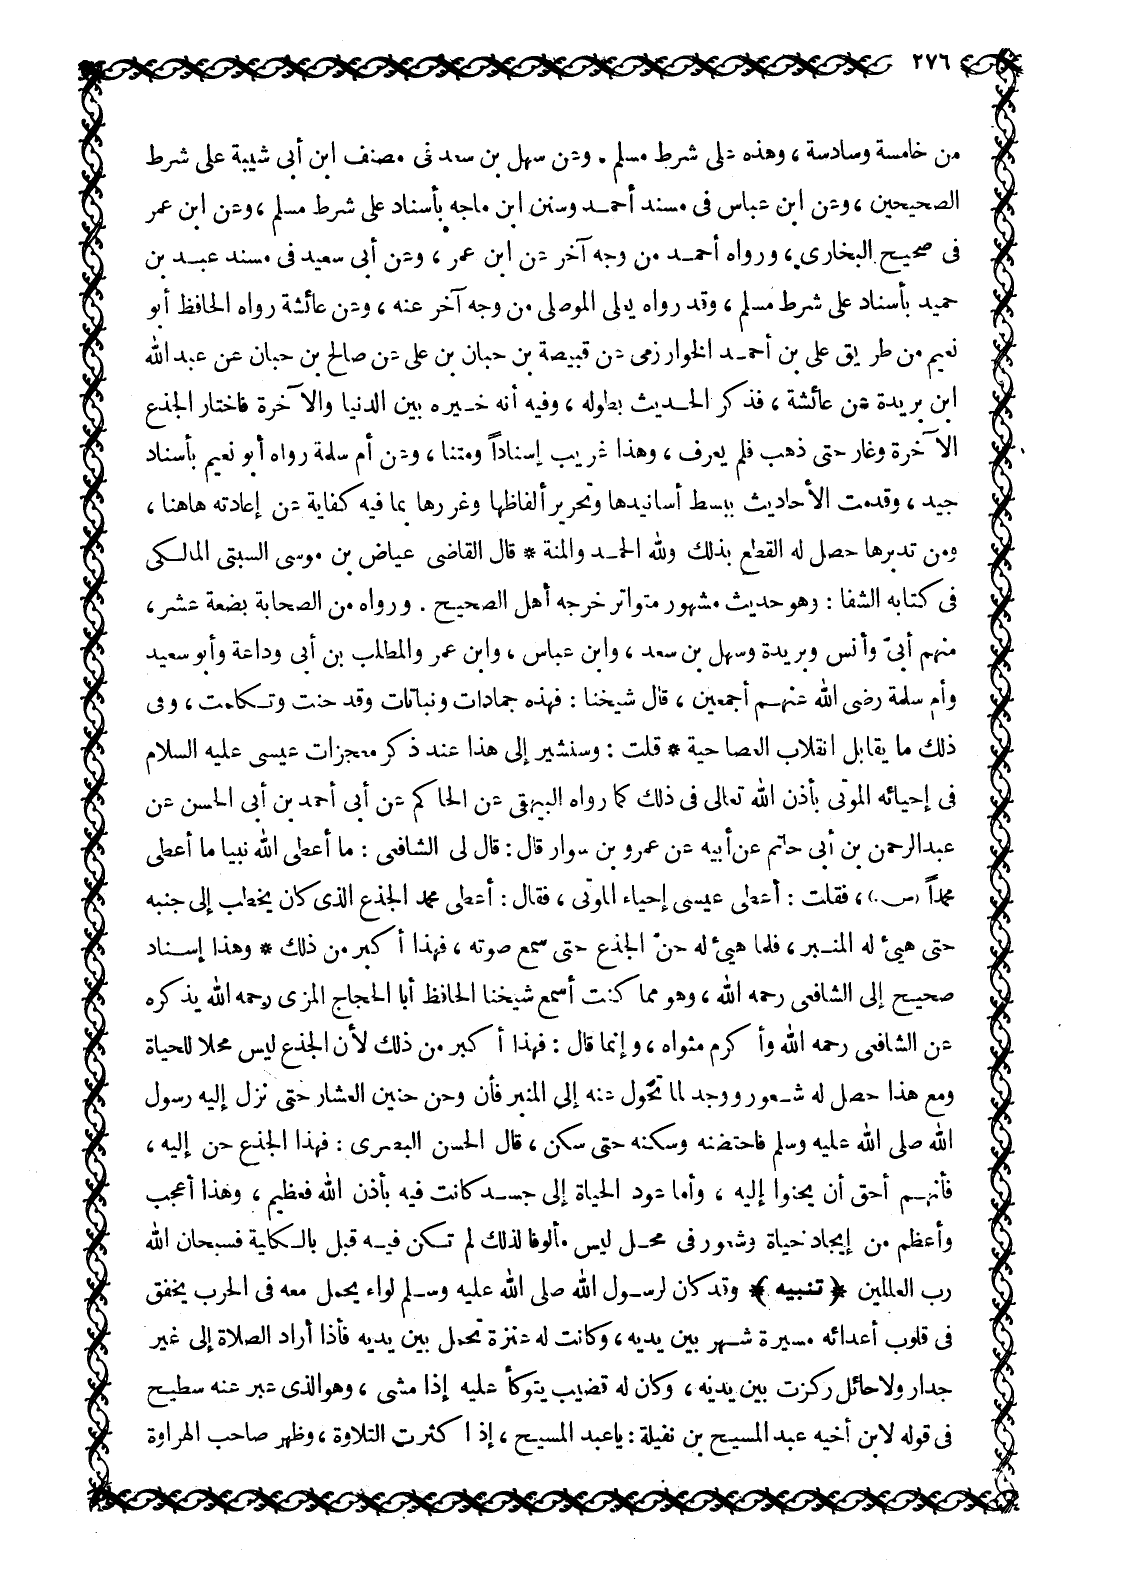 ٢٧٦
من خامسة وسادسة ، وهذه على شرط مسلم . وعن سهل بن سعد فى مصنف ابن أبى شيبة على شرط
الصحيحين ، وعن ابن عباس فى مسند أحمد وسنن ابن ماجه بأسناد على شرط مسلم ، وعن ابن عمر
فى صحيح البخارى ، ورواه أحمد من وجه آخر عن ابن عمر ، وعن أبى سعيد فى مسند عبد بن
حميد بأسناد على شرط مسلم ، وقد رواه يعلى الموصلى من وجه آخر عنه ، وعن عائشة رواه الحافظ أبو
نعيم من طريق على بن أحمد الخوارزمى عن قبيصة بن حبان بن على عن صالح بن حبان عن عبد الله
ابن بريدة عن عائشة ، فذكر الحديث بطوله ، وفيه أنه خيره بين الدنيا والآخرة فاختار الجذع
الآخرة وغار حتى ذهب فلم يعرف ، وهذا غريب إسناداً ومتنا ، وعن أم سلمة رواه أبو نعيم بأسناد
جيد ، وقدمت الأحاديث ببسط أسانيدها وتحرير ألفاظها وغررها بما فيه كفاية عن إعادته هاهنا ،
ومن تدبرها حصل له القطع بذلك ولله الحمد والمنة * قال القاضى عياض بن موسى السبتى المالكى
فى كتابه الشفا : وهو حديث مشهور متواتر خرجه أهل الصحيح . ورواه من الصحابة بضعة عشر ،
منهم أبىّ وأنس وبريدة وسهل بن سعد ، وابن عباس ، وابن عمر والمطلب بن أبى وداعة وأبو سعيد
وأم سلمة رضى الله عنهم أجمعين ، قال شيخنا : فهذه جمادات ونباتات وقد حنت وتكلمت ، وفى
ذلك ما يقابل انقلاب العصا حية * قلت : وسنشير إلى هذا عند ذكر معجزات عيسى عليه السلام
فى إحيائه الموتى بأذن الله تعالى فى ذلك كما رواه البيهقى عن الحاكم عن أبى أحمد بن أبى الحسن عن
عبدالرحمن بن أبى حاتم عن أبيه عن عمرو بن سوار قال : قال لى الشافعى : ما أعطى الله نبيا ما أعطى
محمداً (ص.) ، فقلت : أعطى عيسى إحياء الموتى ، فقال : أعطى محمد الجذع الذى كان يخطب إلى جنبه
حتى هيئ له المنبر ، فلما هيئ له حنّ الجذع حتى سمع صوته ، فهذا أكبر من ذلك * وهذا إسناد
صحيح إلى الشافعى رحمه الله ، وهو مما كنت أسمع شيخنا الحافظ أبا الحجاج المزى رحمه الله يذكره
عن الشافعى رحمه الله وأكرم مثواه ، وإنما قال : فهذا أكبر من ذلك لأن الجذع ليس محلا للحياة
ومع هذا حصل له شعور ووجد لما تحول عنه إلى المنبر فأن وحن حنين العشار حتى نزل إليه رسول
الله صلى الله عليه وسلم فاحتضنه وسكنه حتى سكن ، قال الحسن البصرى : فهذا الجذع حن إليه ،
فأنهم أحق أن يحنوا إليه ، وأما عود الحياة إلى جسد كانت فيه بأذن الله فعظيم ، وهذا أعجب
وأعظم من إيجاد حياة وشعور فى محل ليس مألوفا لذلك لم تكن فيه قبل بالكلية فسبحان الله
رب العالمين ﴿ تنبيه ﴾ وقد كان لرسول الله صلى الله عليه وسلم لواء يحمل معه فى الحرب يخفق
فى قلوب أعدائه مسيرة شهر بين يديه ، وكانت له عنزة تحمل بين يديه فأذا أراد الصلاة إلى غير
جدار ولا حائل ركزت بين يديه ، وكان له قضيب يتوكأ عليه إذا مشى ، وهو الذى عبر عنه سطيح
فى قوله لابن أخيه عبد المسيح بن نفيلة : ياعبد المسيح ، إذا كثرت التلاوة ، وظهر صاحب الهراوة